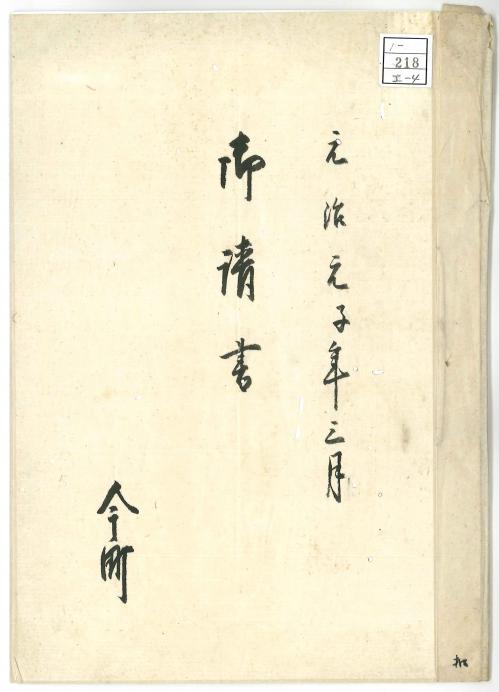 1-
218
エ-4
元治元子年三月
御請書
今町